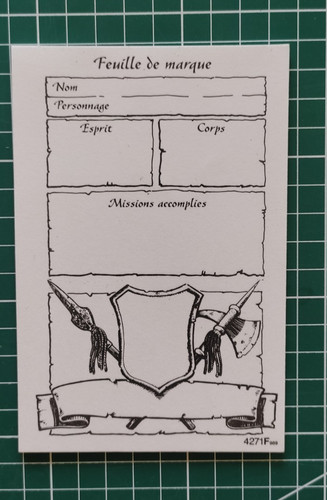 Feuille de marque
Nom
Personnage
Esprit
Corps
Missions accomplies
4271F